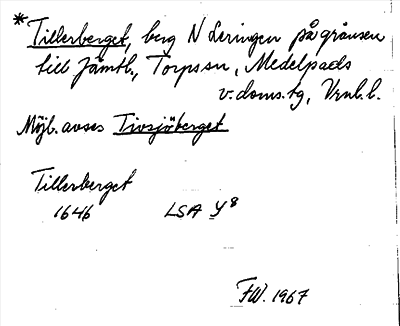 * Tillerberget, berg N Leringen på gränsen
till Jämtl., Torps sn, Medelpads
v. doms. tg, Vnl. l.
Möjl. avses Tivsjöberget
Tillerberget
1646 LSA Y8
FW. 1967